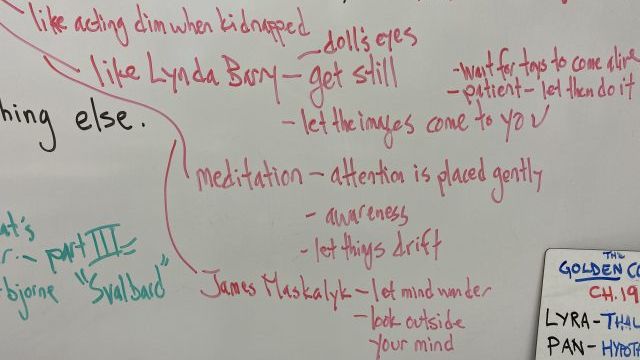 like acting dim when kidnapped
doll's eyes
like Lynda Barry - get still
- want for toys to come alive
- patient - let them do it
- let the images come to you
hing else.
meditation - attention is placed gently
- awareness
- let things drift
at's
r. - part III =
bjorne "Svalbard"
James Maskalyk - let mind wander
- look outside
your mind
THE
GOLDEN CO
CH. 19
LYRA - THAL
PAN - HYPOT